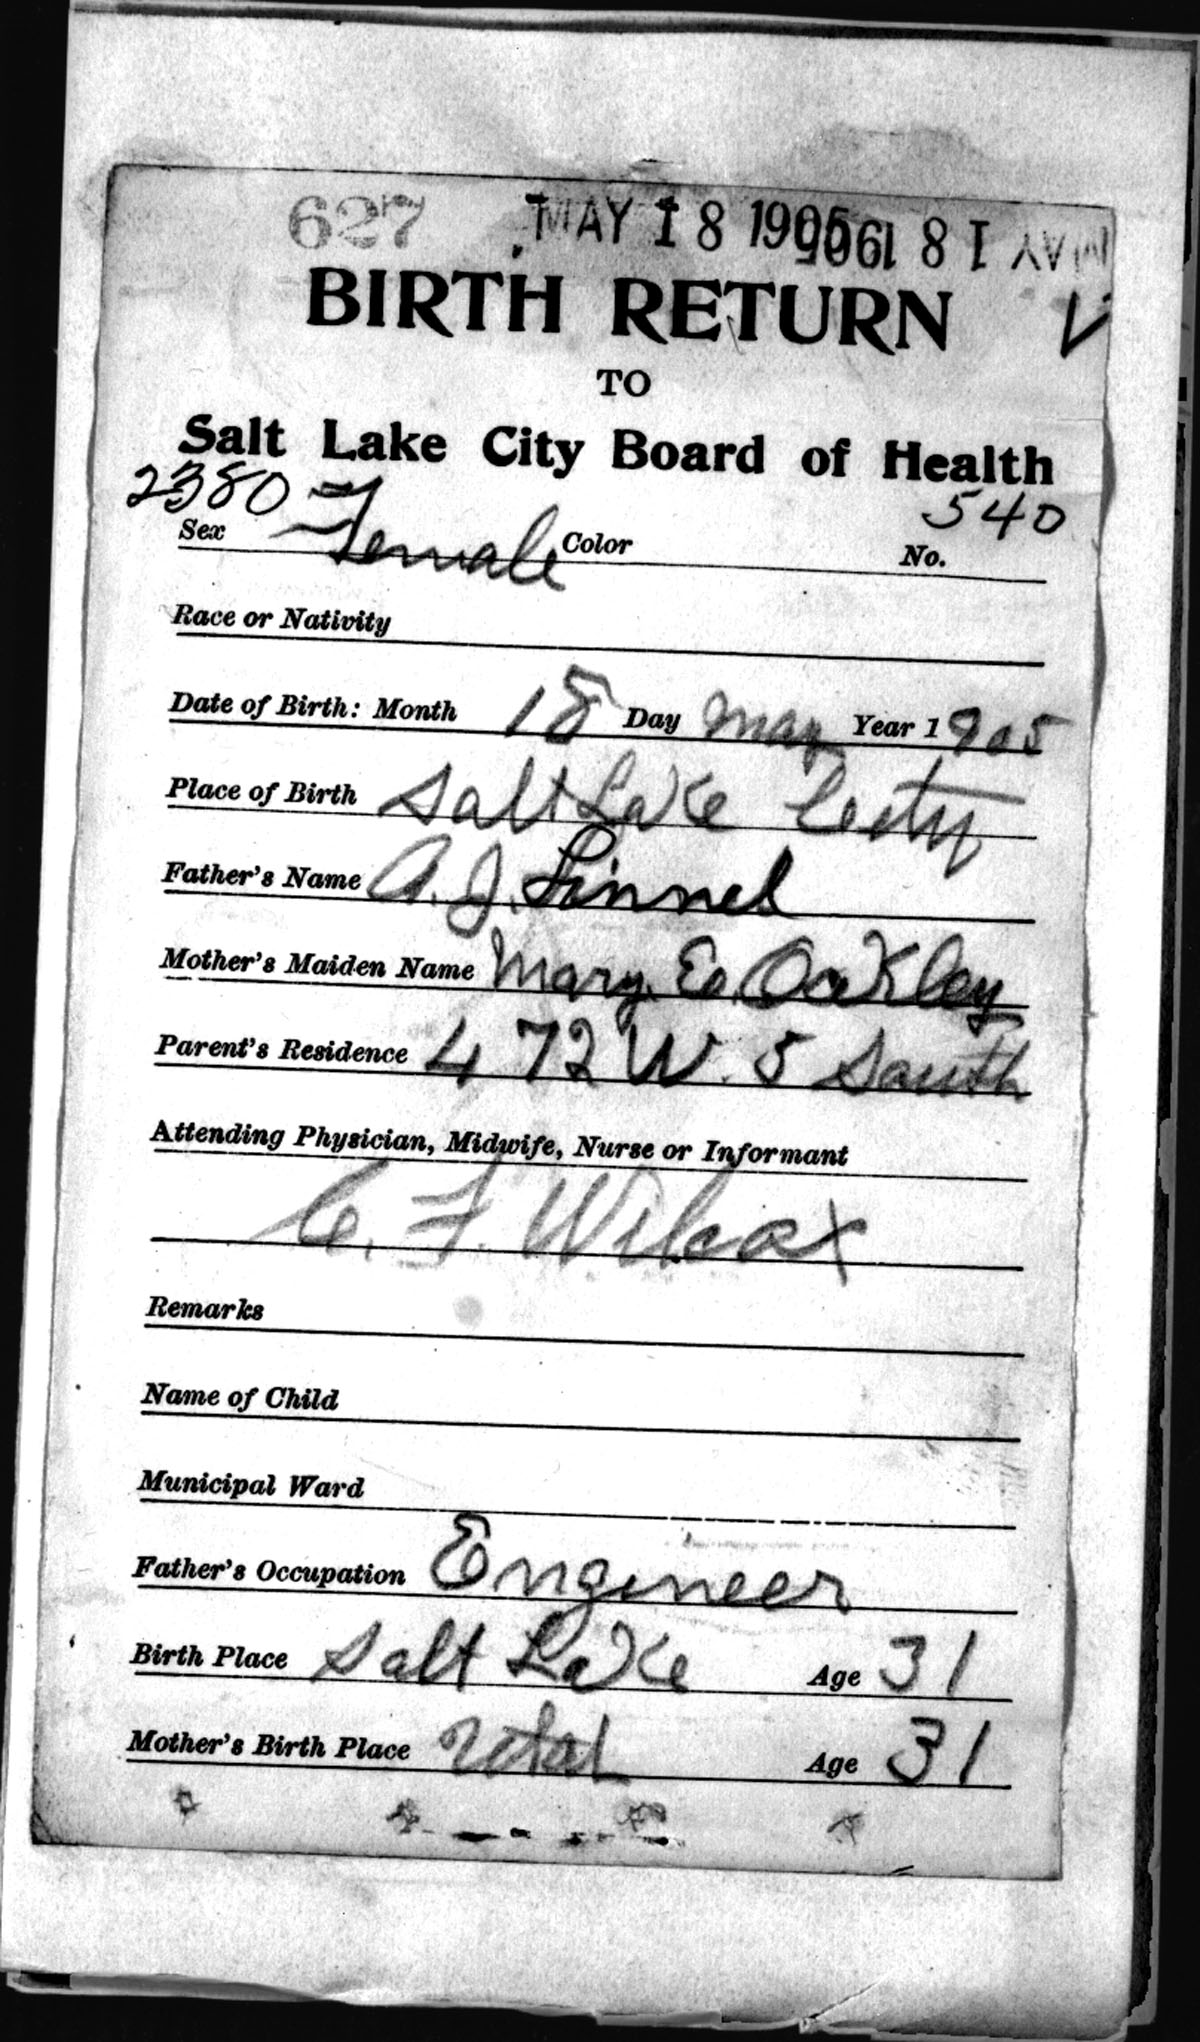 627 MAY 18 1905 MAY 18 1905
BIRTH RETURN
TO
Salt Lake City Board of Health
2380 540
Sex Female Color No.
Race or Nativity
Date of Birth: Month 18 Day May Year 1905
Place of Birth Salt Lake City
Father's Name A. J. Linnel
Mother's Maiden Name Mary. E. Oakley
Parent's Residence 472 W. 5 South
Attending Physician, Midwife, Nurse or Informant
C. F. Wilcox
Remarks
Name of Child
Municipal Ward
Father's Occupation Engineer
Birth Place Salt Lake Age 31
Mother's Birth Place Utah Age 31